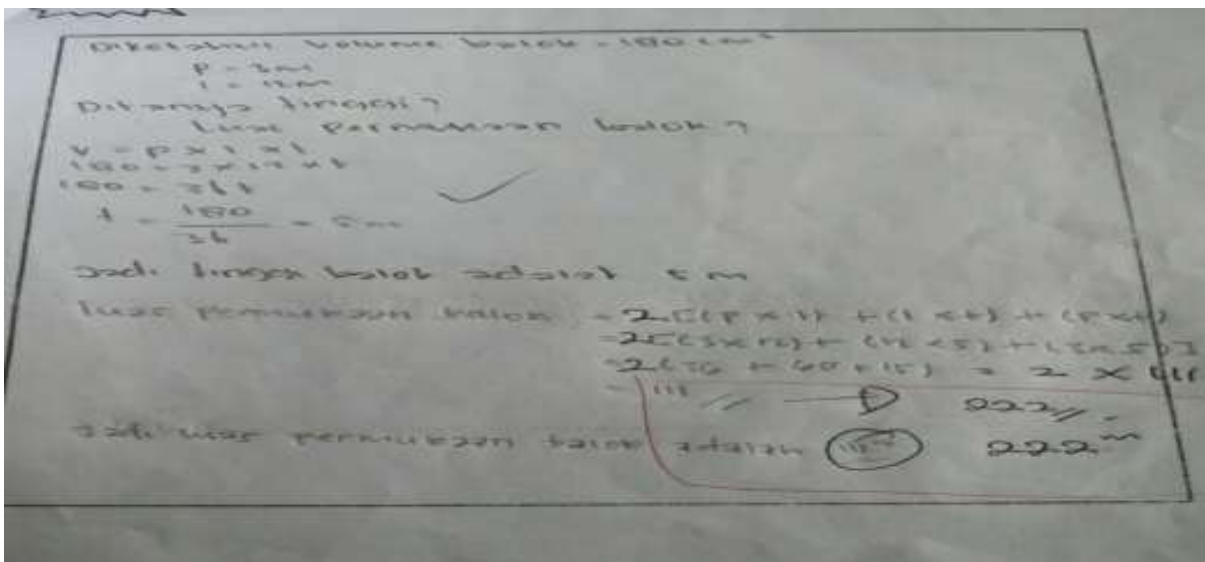 Diketahui Volume balok = 180 cm³
P = 3 m
l = 12 m
Ditanya tinggi?
Luas Permukaan balok?
V = P x l x t
180 = 3 x 12 x t
180 = 36 t
t = 180 / 36 = 5 m
Jadi tinggi balok adalah 5 m
luas permukaan balok = 2[(P x l) + (l x t) + (p x t)
= 2[(3 x 12) + (12 x 5) + (3 x 5)]
= 2(36 + 60 + 15) = 2 x 111
= 111 // → 222 //
Jadi luas permukaan balok adalah 111 m 222 m